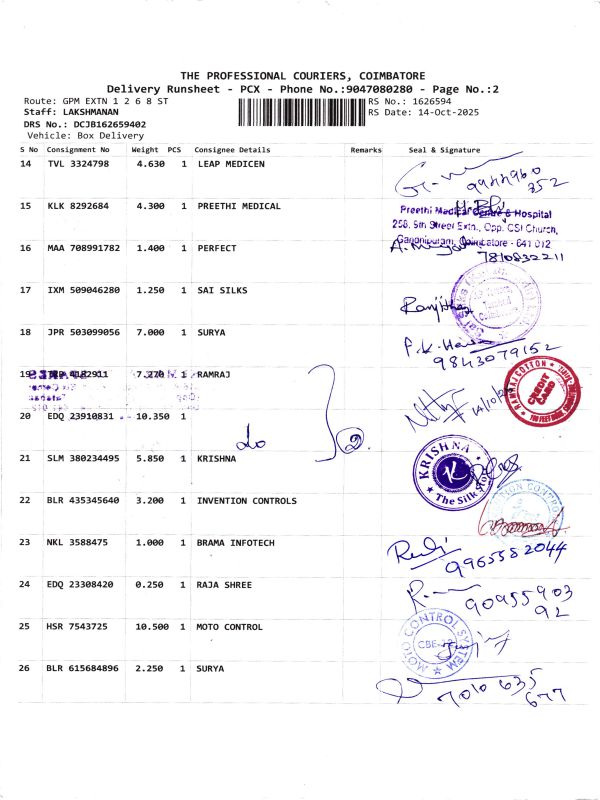 THE PROFESSIONAL COURIERS, COIMBATORE
Delivery Runsheet - PCX - Phone No.:9047080280 - Page No.:2
Route: GPM EXTN 1 2 6 8 ST
RS No.: 1626594
Staff: LAKSHMANAN
RS Date: 14-Oct-2025
DRS No.: DCJB162659402
Vehicle: Box Delivery
S No Consignment No Weight PCS Consignee Details Remarks Seal & Signature
14 TVL 3324798 4.630 1 LEAP MEDICEN
9944960
352
15 KLK 8292684 4.300 1 PREETHI MEDICAL
Preethi Medical Centre & Hospital
258, 5th Street Extn., Opp. CSI Church,
Gandhipuram, Coimbatore - 641 012
16 MAA 708991782 1.400 1 PERFECT
7810832211
17 IXM 509046280 1.250 1 SAI SILKS
Ranjitha
18 JPR 503099056 7.000 1 SURYA
9843079152
19 4182911 7.270 1 RAMRAJ
RAMRAJ COTTON
CREDIT CARD
14/10/25
20 EDQ 23910831 10.350 1
do 2
21 SLM 380234495 5.850 1 KRISHNA
KRISHNA
K
The Silk
22 BLR 435345640 3.200 1 INVENTION CONTROLS
23 NKL 3588475 1.000 1 BRAMA INFOTECH
9965582044
24 EDQ 23308420 0.250 1 RAJA SHREE
90955903
92
25 HSR 7543725 10.500 1 MOTO CONTROL
MOTO CONTROL SYSTEM
CBE-12
26 BLR 615684896 2.250 1 SURYA
7010 635
677